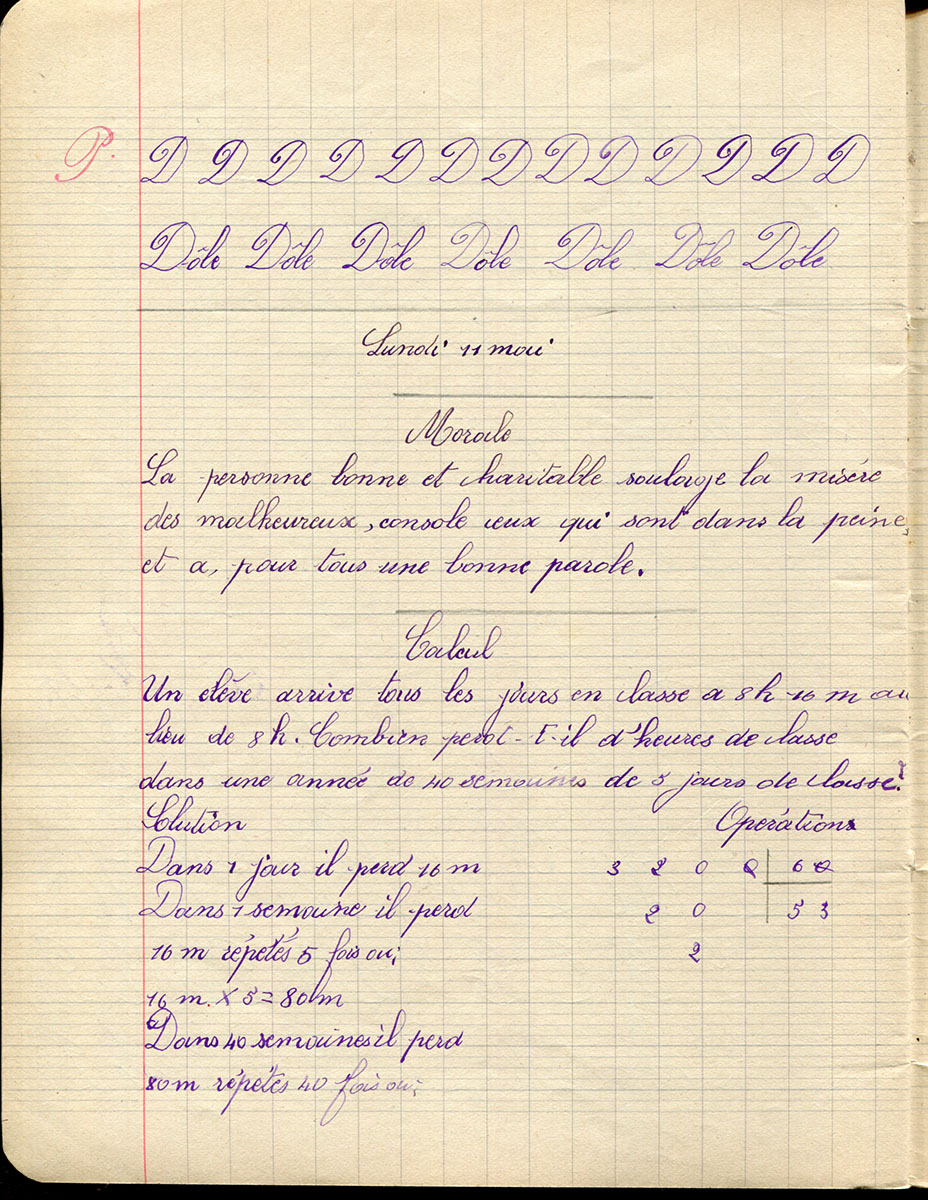 P. D D D D D D D D D D D D D
Dôle Dôle Dôle Dôle Dôle Dôle Dôle
Lundi 11 mai
Morale
La personne bonne et charitable soulage la misére
des malheureux, console ceux qui sont dans la peine,
et a, pour tous une bonne parole.
Calcul
Un elève arrive tous les jours en classe a 8 h 16 m au
lieu de 8 h. Combien perd-t-il d'heures de classe
dans une année de 40 semaines de 5 jours de classe?
Solution
Opérations
Dans 1 jour il perd 16 m
3 2 0 0 | 6 0
Dans 1 semaine il perd
2 0 | 5 3
16 m répétés 5 fois ou;
2
16 m. x 5 = 80 m
Dans 40 semaines il perd
80 m répétés 40 fois ou;